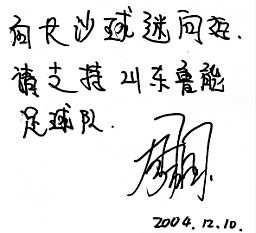 向长沙球迷问好.
请支持山东鲁能
足球队.
2004.12.10.